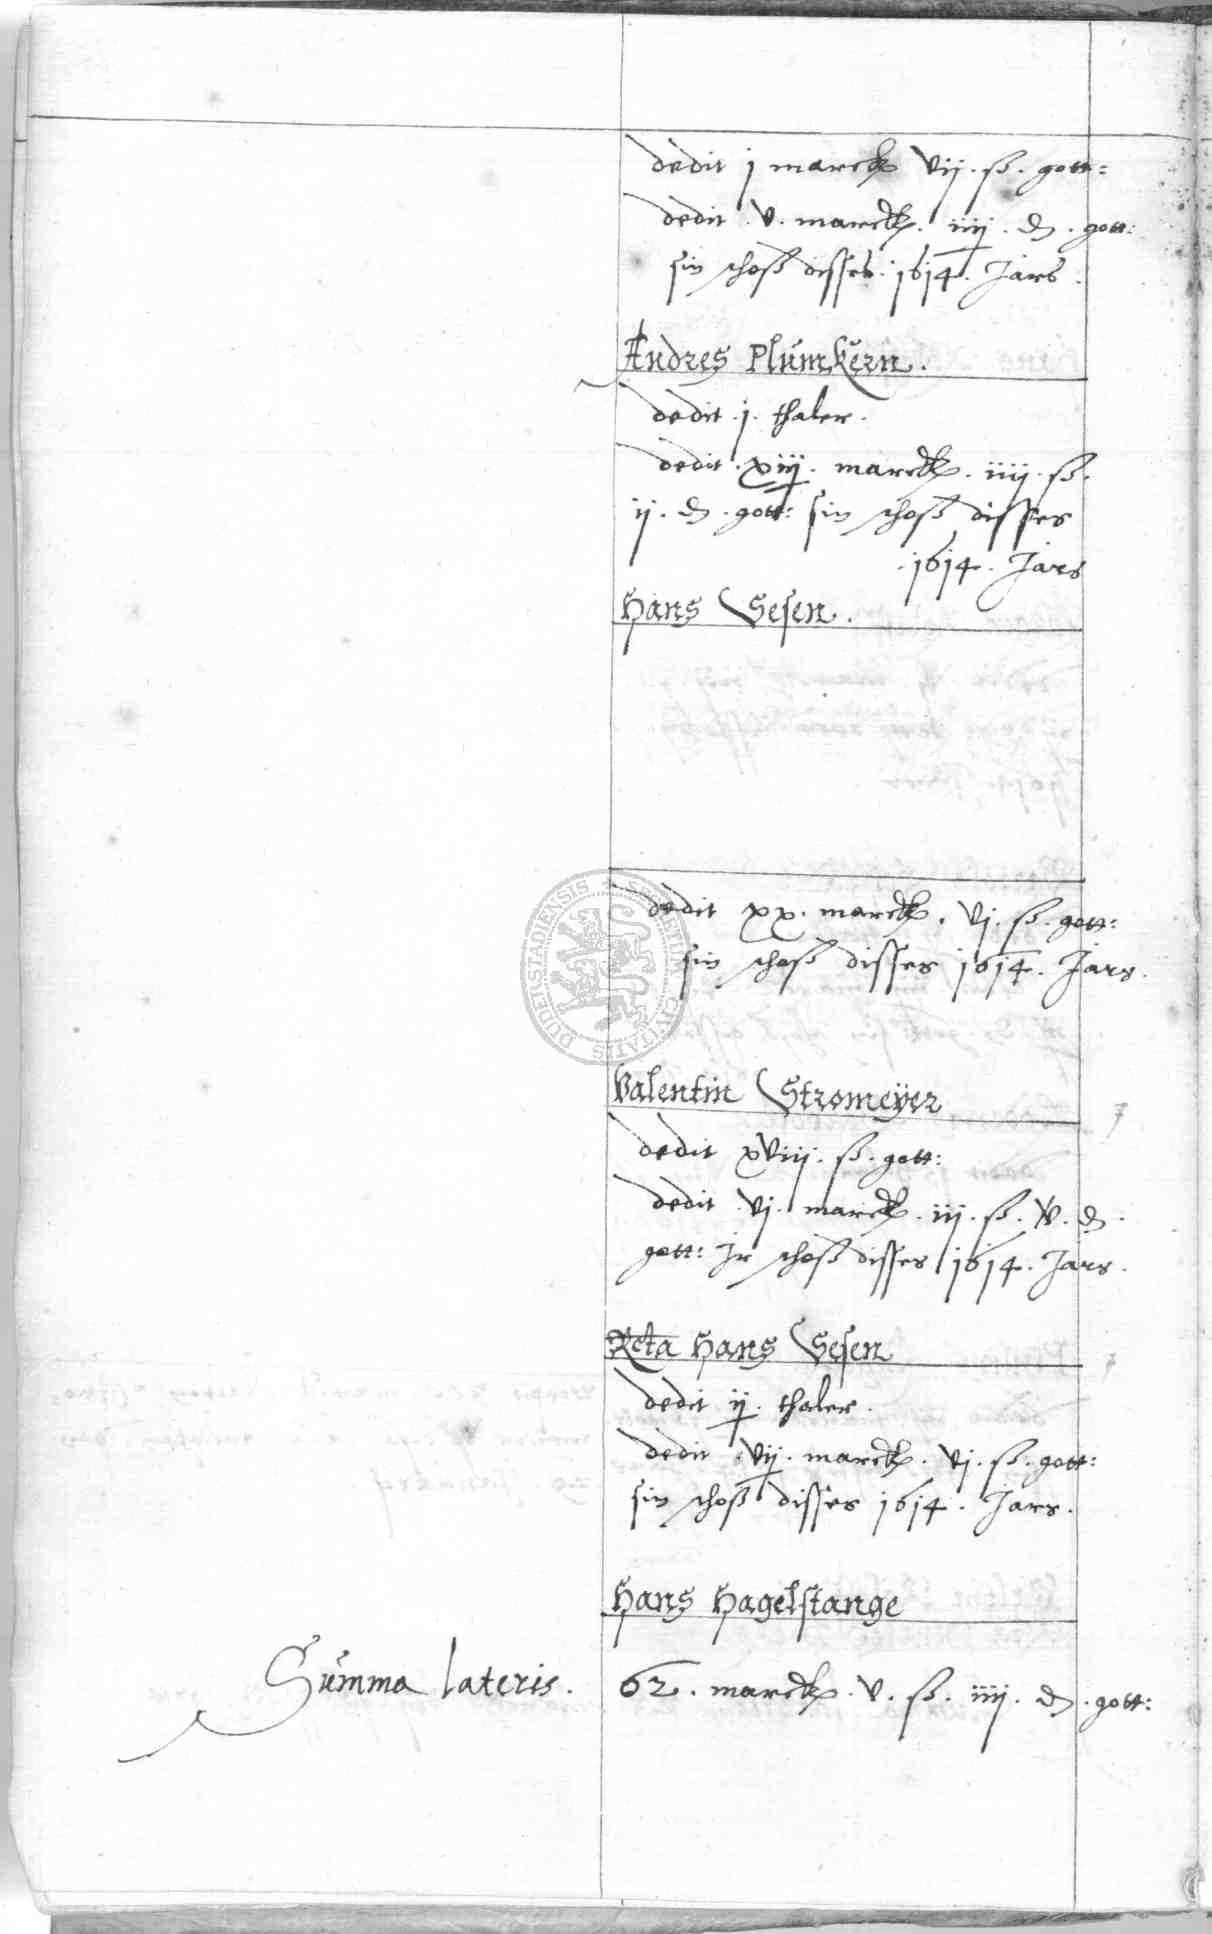 dedit j marck vij. ß. gott:
dedit .v. marck. iiij. d. gott:
sin schoß disses. 1614. Jars.
Andres Plümkern.
dedit .j. thaler.
dedit .xiij. marck. iiij. ß.
ij. d. gott: sin schoß disses
.1614. Jars
Hans Gesen.
dedit xx. marck. vj. ß. gott:
sin schoß disses 1614. Jars.
DUDERSTADIENSIS SECRETUM CIVITATIS
Valentin Stromeÿer
dedit xviij. ß. gott:
dedit .vj. marck. iij. ß. v. d.
gott: Jr schoß disses 1614. Jars.
Relicta Hans Gesen
dedit ij. thaler.
dedit .vij. marck. vj. ß. gott:
sin schoß disses 1614. Jars.
Hans Hagelstange
Summa lateris. 62. marck. v. ß. iiij. d. gott: